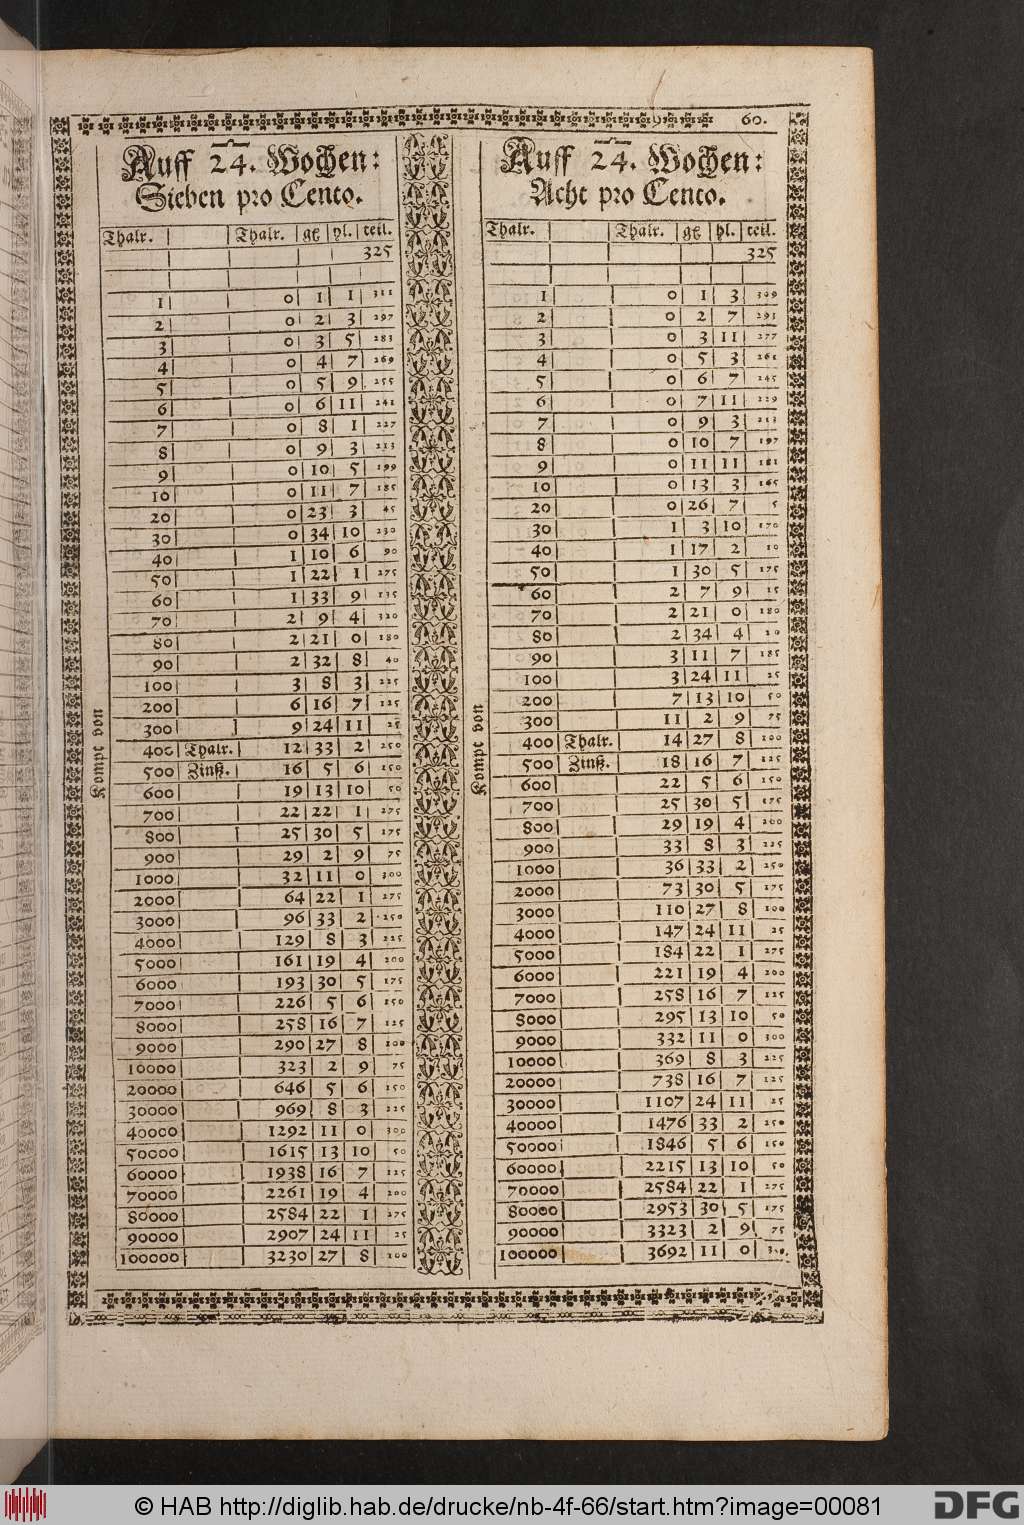 60.
Auff 24. Wochen:
Sieben pro Cento.
Thalr. Thalr. gg pl. teil.
325
1 0 1 1 311
2 0 2 3 297
3 0 3 5 283
4 0 4 7 269
5 0 5 9 255
6 0 6 11 241
7 0 8 1 227
8 0 9 3 213
9 0 10 5 199
10 0 11 7 185
20 0 23 3 45
30 0 34 10 230
40 1 10 6 90
50 1 22 1 275
60 1 33 9 135
70 2 9 4 320
80 2 21 0 180
90 2 32 8 40
100 3 8 3 225
200 6 16 7 125
300 9 24 11 25
400 Thalr. 12 33 2 250
500 Zinß. 16 5 6 150
600 19 13 10 50
700 22 22 1 275
800 25 30 5 175
900 29 2 9 75
1000 32 11 0 300
2000 64 22 1 275
3000 96 33 2 250
4000 129 8 3 225
5000 161 19 4 200
6000 193 30 5 175
7000 226 5 6 150
8000 258 16 7 125
9000 290 27 8 100
10000 323 2 9 75
20000 646 5 6 150
30000 969 8 3 225
40000 1292 11 0 300
50000 1615 13 10 50
60000 1938 16 7 125
70000 2261 19 4 200
80000 2584 22 1 275
90000 2907 24 11 25
100000 3230 27 8 100
Kompt von
Auff 24. Wochen:
Acht pro Cento.
Thalr. Thalr. gg pl. teil.
325
1 0 1 3 309
2 0 2 7 293
3 0 3 11 277
4 0 5 3 261
5 0 6 7 245
6 0 7 11 229
7 0 9 3 213
8 0 10 7 197
9 0 11 11 181
10 0 13 3 165
20 0 26 7 5
30 1 3 10 170
40 1 17 2 10
50 1 30 5 175
60 2 7 9 15
70 2 21 0 180
80 2 34 4 20
90 3 11 7 185
100 3 24 11 25
200 7 13 10 50
300 11 2 9 75
400 Thalr. 14 27 8 100
500 Zinß. 18 16 7 125
600 22 5 6 150
700 25 30 5 175
800 29 19 4 200
900 33 8 3 225
1000 36 33 2 250
2000 73 30 5 175
3000 110 27 8 100
4000 147 24 11 25
5000 184 22 1 275
6000 221 19 4 200
7000 258 16 7 125
8000 295 13 10 50
9000 332 11 0 300
10000 369 8 3 225
20000 738 16 7 125
30000 1107 24 11 25
40000 1476 33 2 250
50000 1846 5 6 150
60000 2215 13 10 50
70000 2584 22 1 275
80000 2953 30 5 175
90000 3323 2 9 75
100000 3692 11 0 300.
Kompt von
© HAB http://diglib.hab.de/drucke/nb-4f-66/start.htm?image=00081
DFG